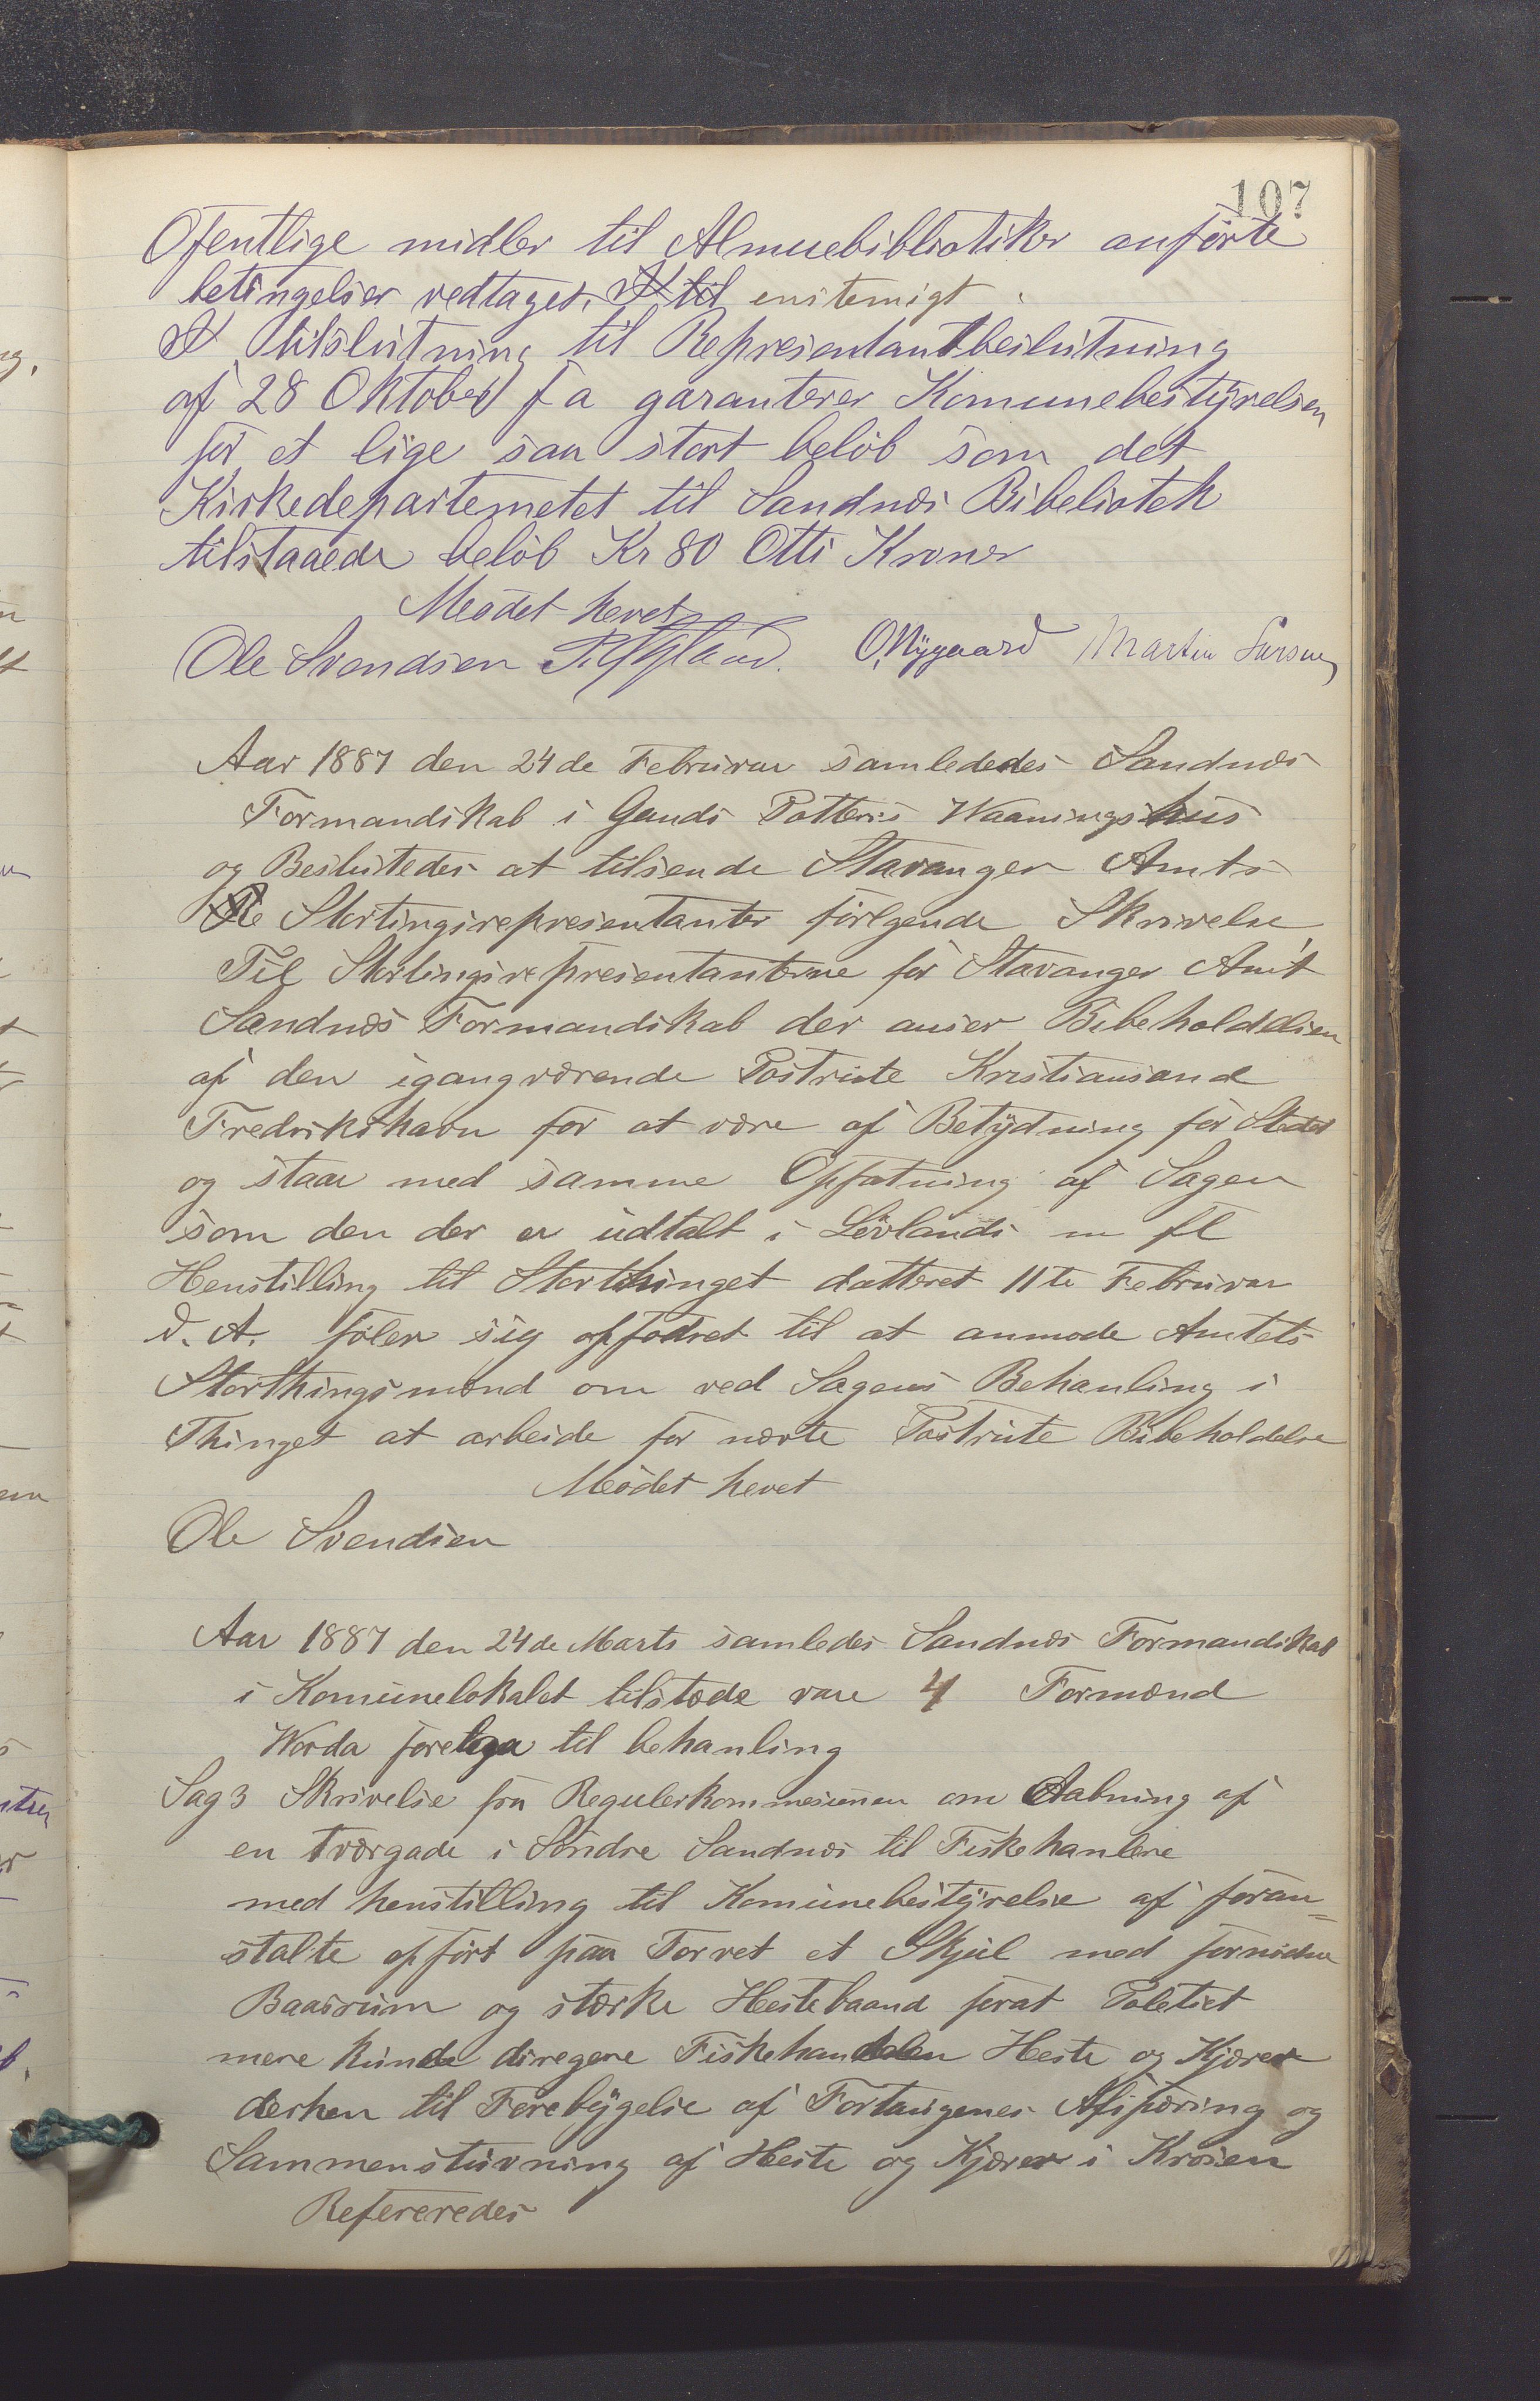 107
Ofentlige midler til Almuebibliotiker anførte
betingelser vedtages, enstemigt.
I tilslutning til Represientantbeslutning
af 28 Oktober f a garanterer Komunebestyrelsen
for et lige saa stort beløb som det
Kirkedepartemetet til Sandnæs Bibeliotek
tilstaaede beløb Kr 80 Otti Kroner
Meødet hevet
Ole Svendsen O. Nygaard Martin Larsen
Aar 1887 den 24de Februrar samlededes Sandnæs
Formandskab i Gands Potteris Waaningshus
og Beslutedes at tilsende Stavanger Amts
Stortingsrepresientanter følgende Skrivelse
Til Stortingsrepresientanterne for Stavanger Amt
Sandnæs Formandskab der anser Bibeholddlsen
af den igangværende Postrute Kristiansand
Fredrikshavn for at være af Betydning for Stedet
og staar med samme Opfatning af Sagen
som den der er udtalt i Løvlands m fl
Henstilling til Storthinget datteret 11te Februrar
d. A. føler sig opfodret til at anmode Amtets
Storthingsmænd om ved Sagens Behanling i
Thinget at arbeide for nævte Postrute Bibeholdelse
Meødet hevet
Ole Svendsen
Aar 1887 den 24de Marts samledes Sandnæs Formandskab
i Komunelokalet tilstæde vare 4 Formænd
Worda forelega til behanling
Sag 3 Skrivelse fra Regulerkommesiunen om Aabning af
en tværgade i Søndre Sandnæs til Fiskehanlere
med henstilling til Komunebestyrelse af foran=
stalte opført paa Torvet et Skjul med fornødne
Baasrum og stærke Hestebaand forat Poletiet
mere kunde diregere Fiskehandelen Heste og Kjærer
derhen til Forebygelse af Fortaugenes Afspæring og
Sammenstuvning af Heste og Kjærer i Krøsen
Refereredes